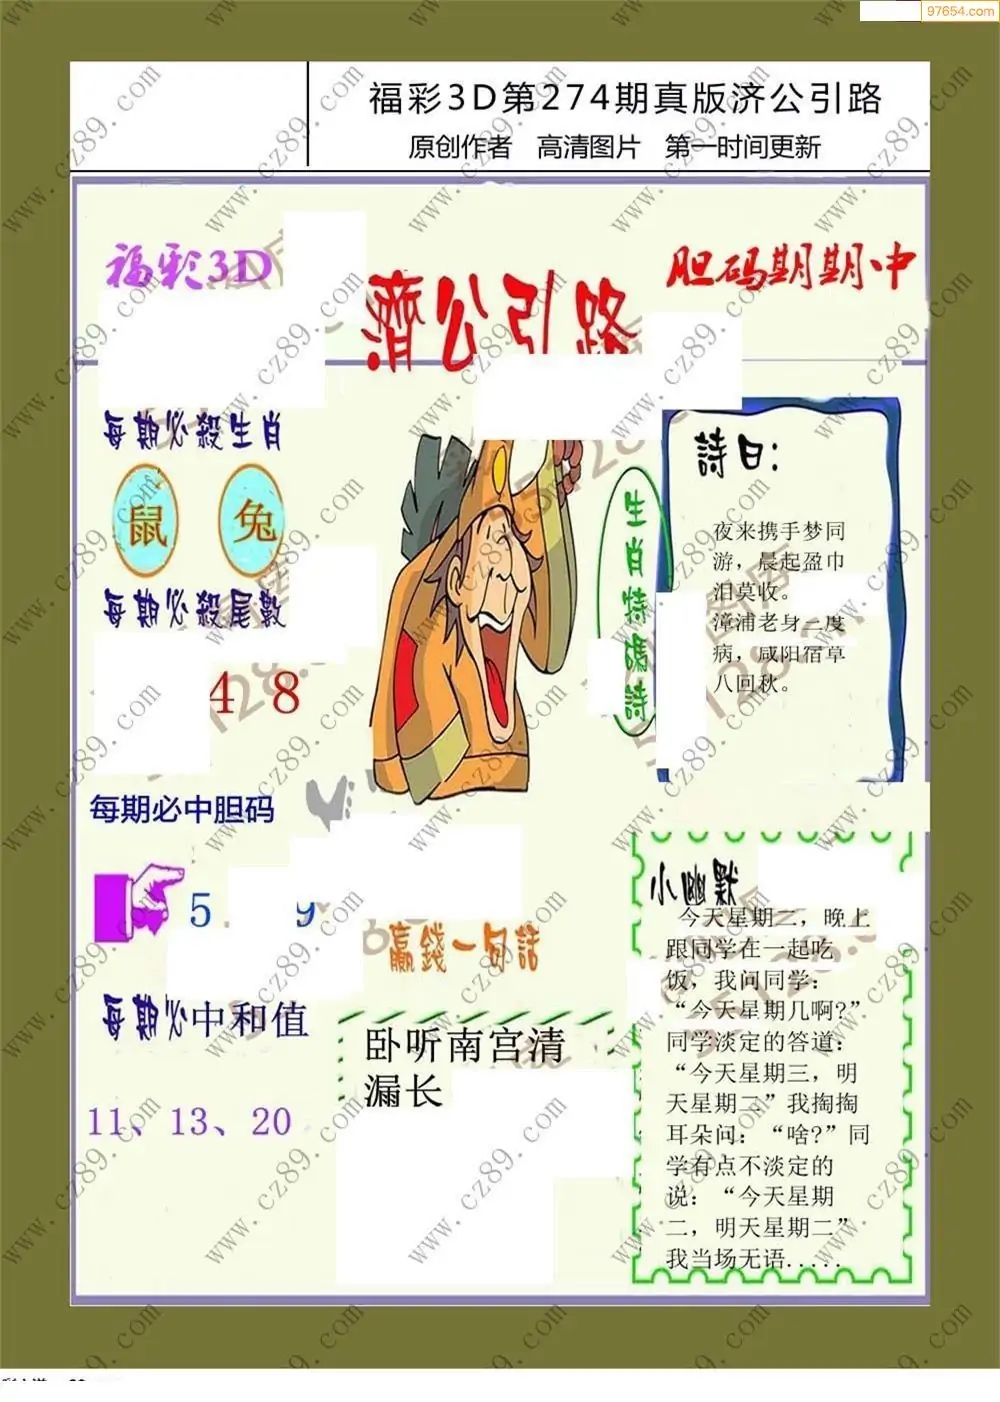 97654.com
福彩3D第274期真版济公引路
原创作者 高清图片 第一时间更新
福彩3D
胆码期期中
濟公引路
每期必殺生肖
鼠 兔
每期必殺尾數
4 8
每期必中胆码
5 9
每期必中和值
11、13、20
生肖特碼詩
詩曰：
夜来携手梦同
游，晨起盈巾
泪莫收。
漳浦老身一度
病，咸阳宿草
八回秋。
赢錢一句話
卧听南宫清
漏长
小幽默
今天星期二，晚上
跟同学在一起吃
饭，我问同学：
“今天星期几啊?”
同学淡定的答道：
“今天星期三，明
天星期二”我掏掏
耳朵问：“啥?”同
学有点不淡定的
说：“今天星期
二，明天星期二”
我当场无语.....
www.cz89.com